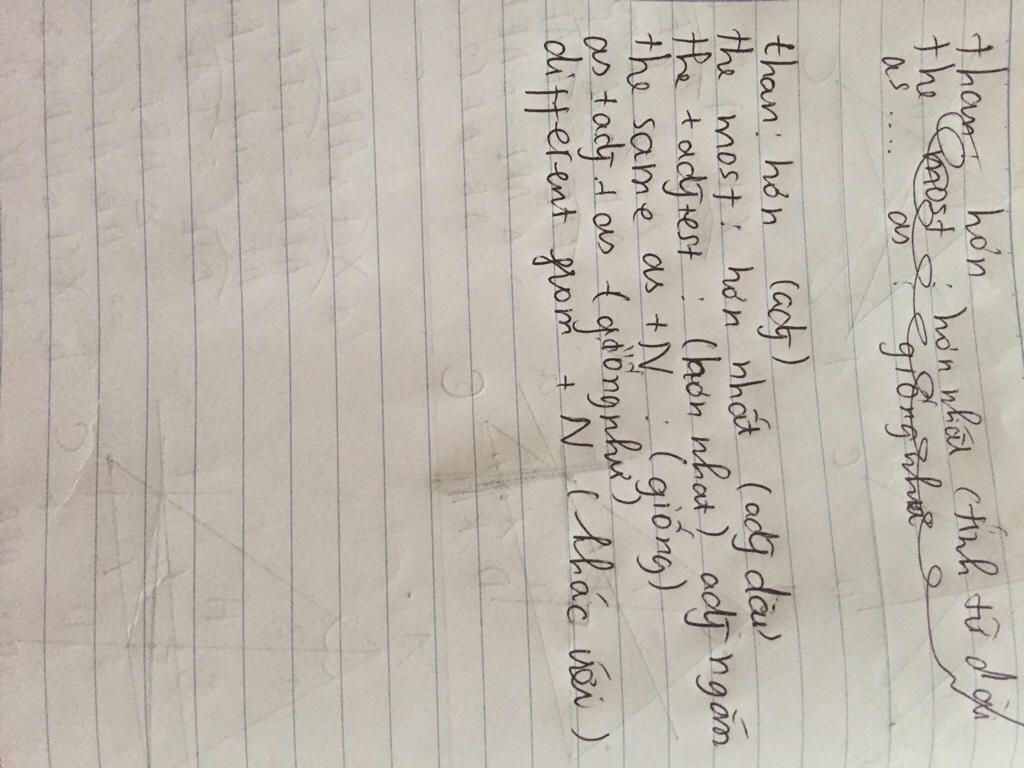 than hơn
the most : hơn nhất (tính từ dài
as .... as : giống như
than : hơn (adj)
the most : hơn nhất (adj dài)
the + adj + est : (hơn nhat) adj ngắn
the same as + N : (giống)
as + adj + as - (giống như)
different from + N (khác với)